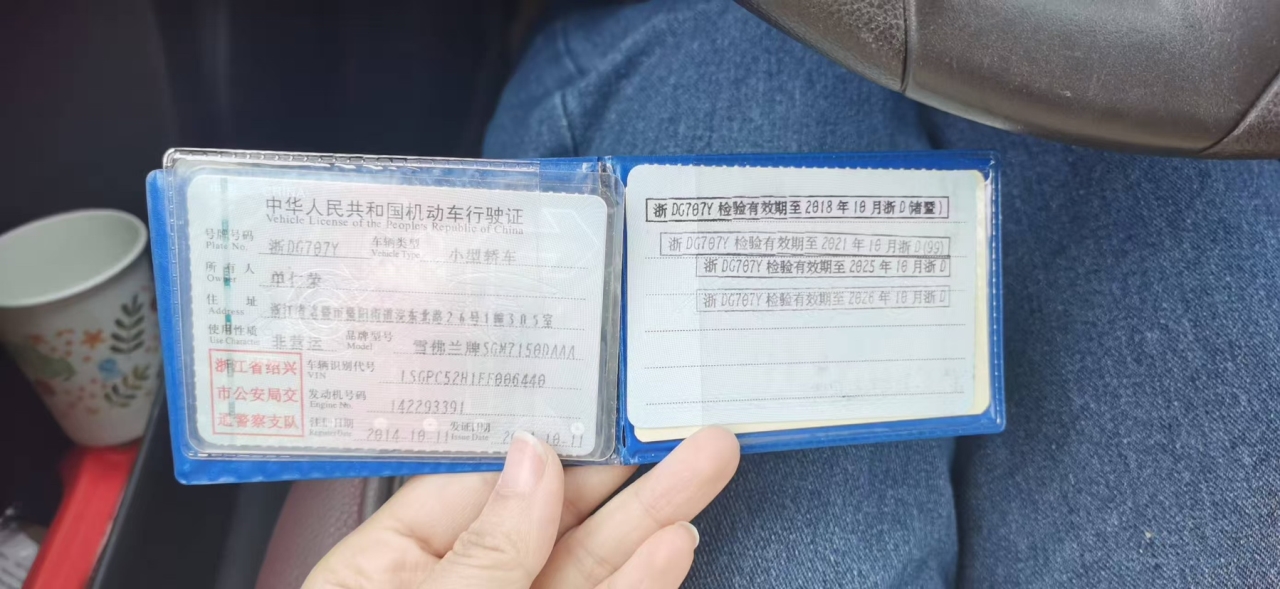 中华人民共和国机动车行驶证
Vehicle License of the People's Republic of China
号牌号码 浙DG707Y 车辆类型 小型轿车
Plate No. Vehicle Type
所有人 单仁荣
Owner
住址 浙江省诸暨市暨阳街道浣东北路26号1幢305室
Address
使用性质 非营运 品牌型号 雪佛兰牌SGM7150DAAA
Use Character Model
浙江省绍兴
市公安局交
通警察支队
车辆识别代号 LSGPC52H1FF006440
VIN
发动机号码 142293391
Engine No.
注册日期 2014-10-11 发证日期
Register Date Issue Date
浙DG707Y检验有效期至2018年10月浙D(诸暨)
浙DG707Y检验有效期至2021年10月浙D(99)
浙DG707Y检验有效期至2025年10月浙D
浙DG707Y检验有效期至2026年10月浙D